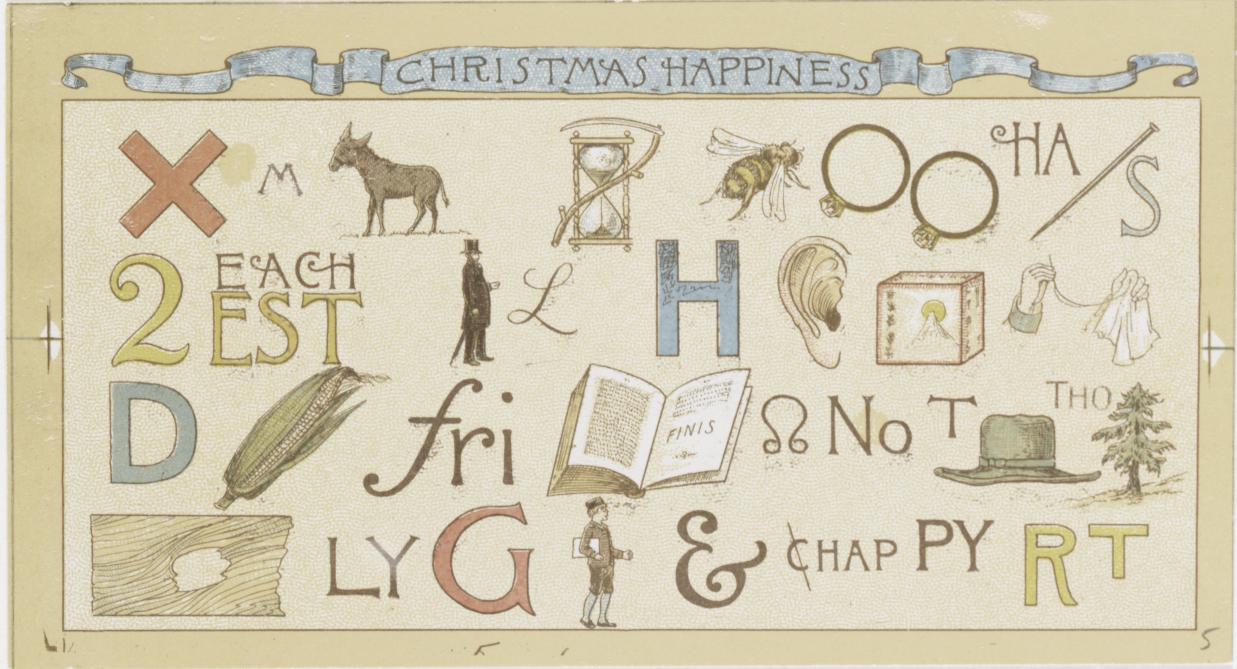 CHRISTMAS HAPPINESS
X M HA S
2 EACH EST L H
D fri FINIS Ω No T THO
LY G & CHAP PY R T